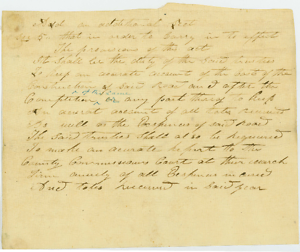 Add an additional Sect
Sec 5 that in order to Carry in to effect
The provisions of the act
It shall be the duty of the said trustees
to keep an accurate account of the cost of the
Construction of said Road and after the
Completion of the Same or any part thereof to keep
an accurate account of all tolls received
as well as the Expenses of said road
The said trustees shall also be required
to make an accurate report to the
County Commissioners Court at their march
term annually of all Expenses incurred
and tolls received in said year